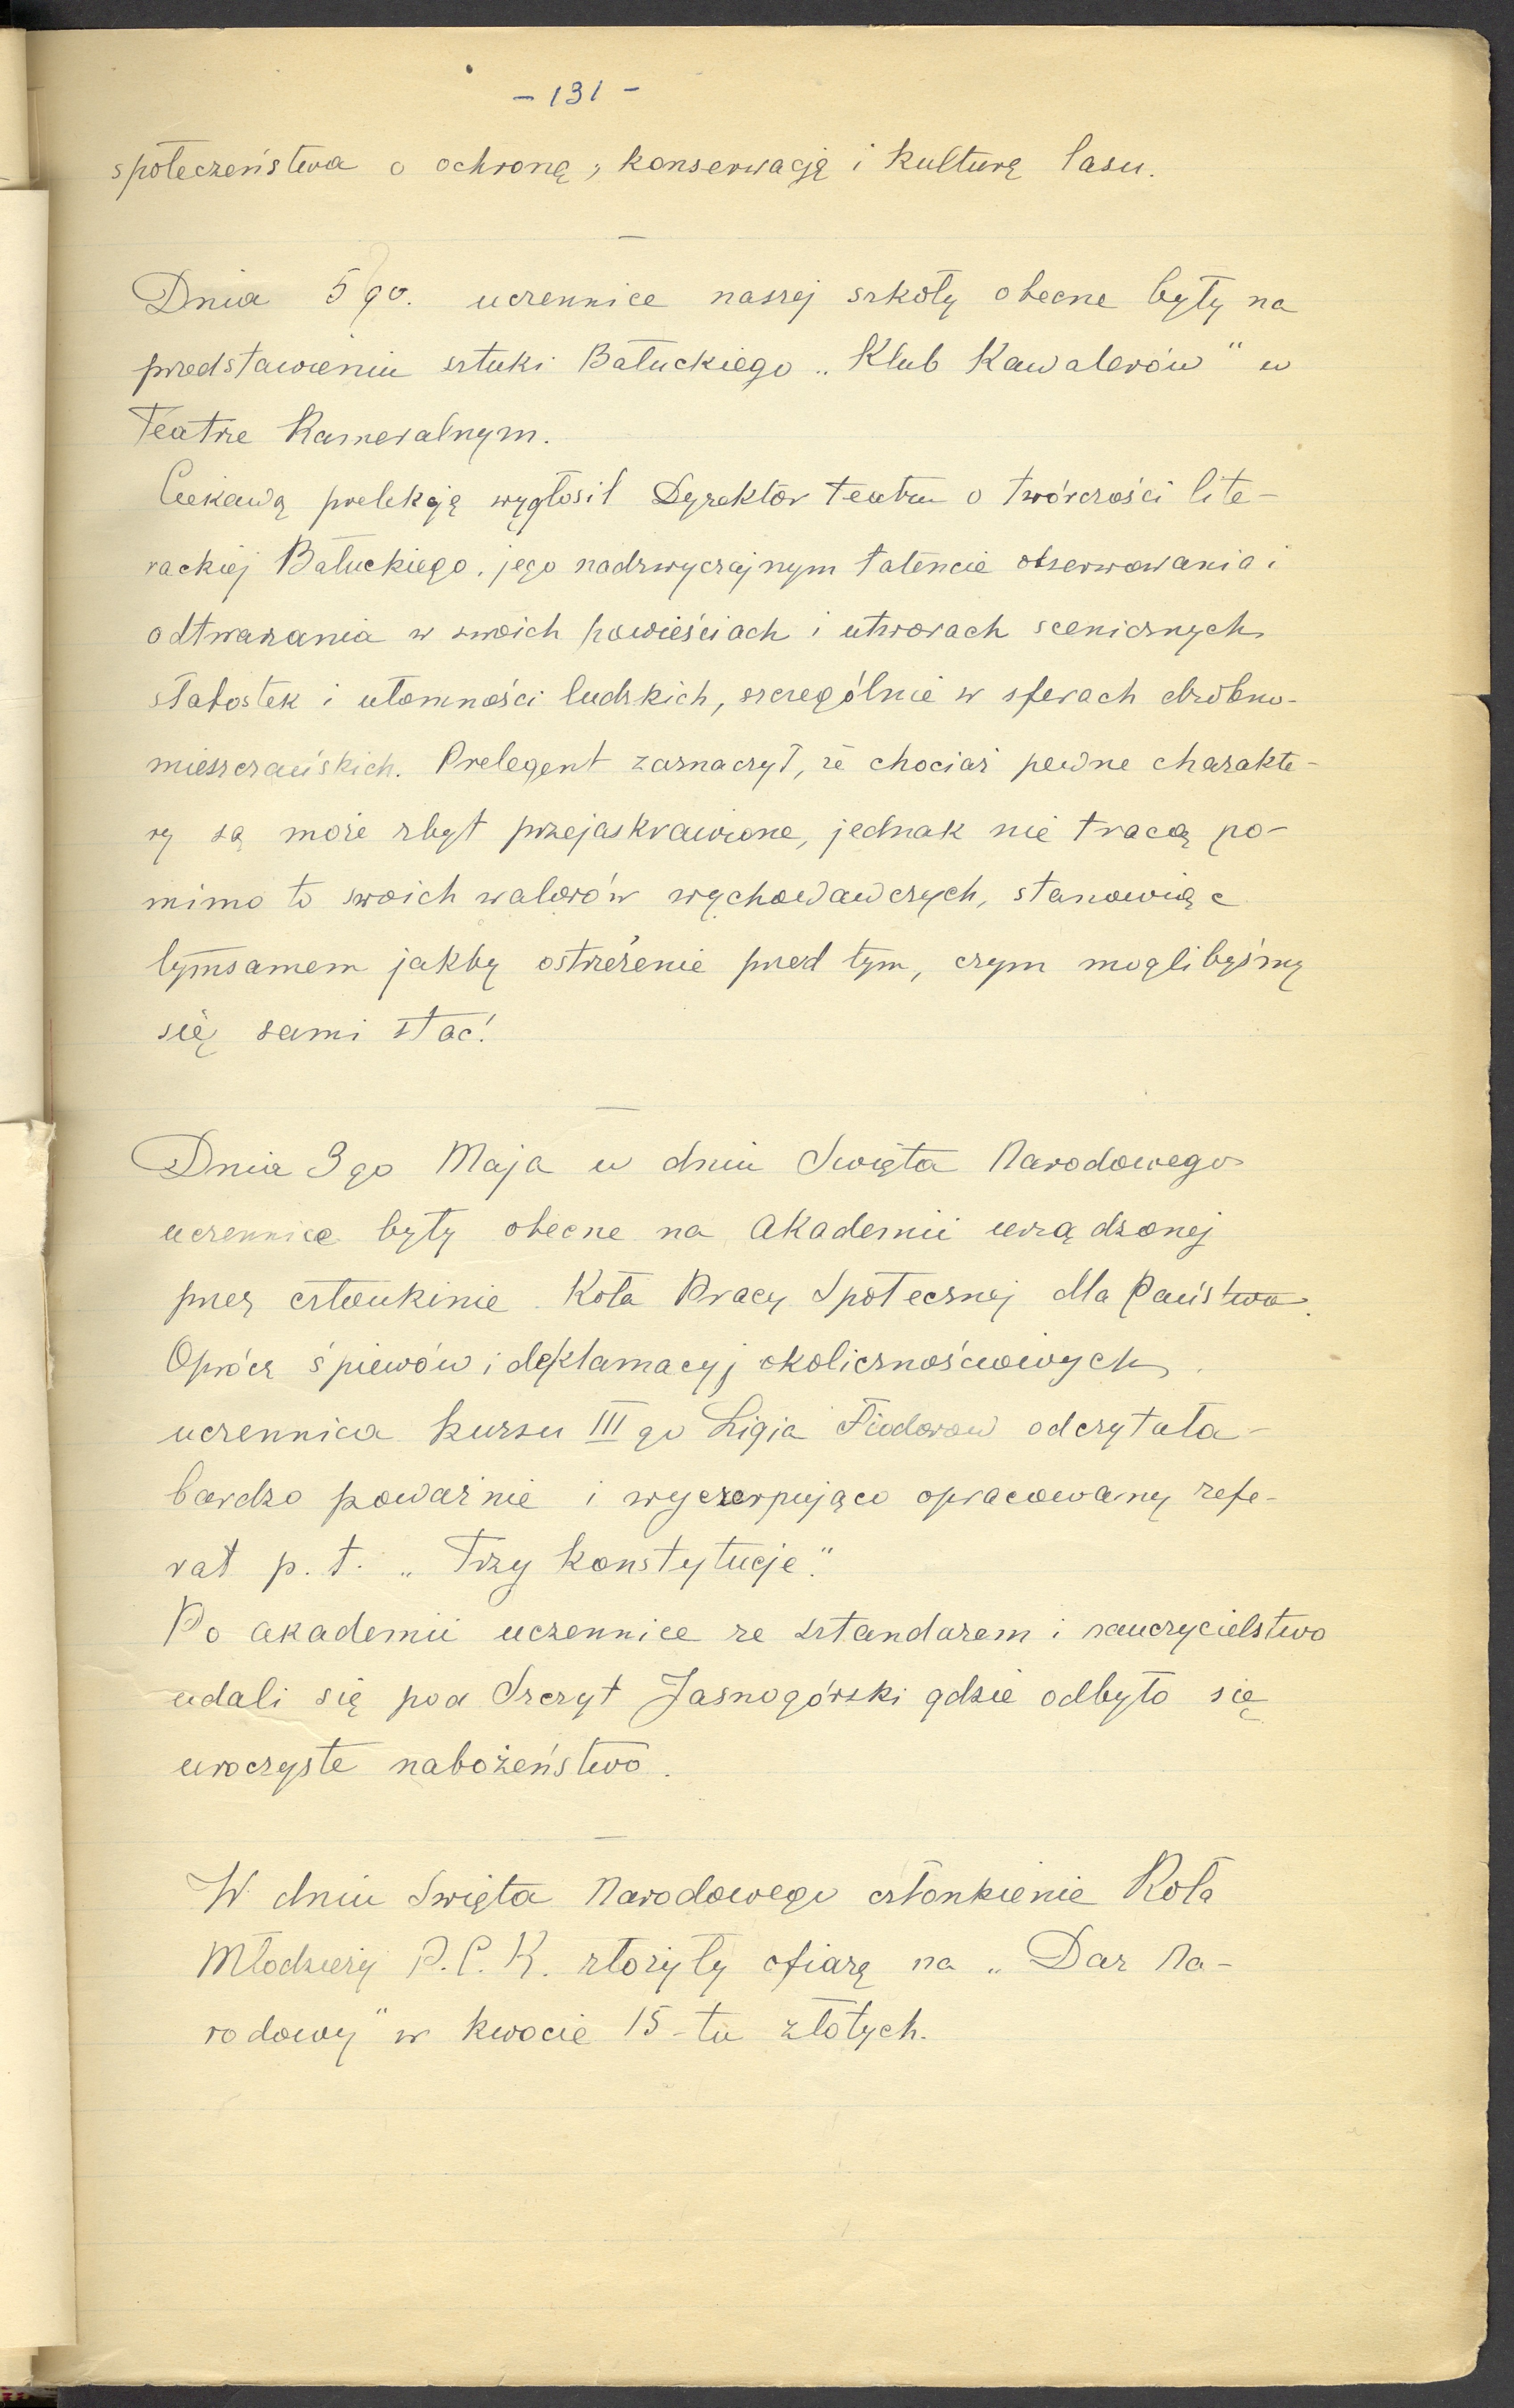 - 131 -
społeczeństwa o ochronę, konserwację i kulturę lasu.
Dnia 5go. uczennice naszej szkoły obecne były na
przedstawieniu sztuki Bałuckiego „Klub Kawalerów" w
Teatrze Kameralnym.
Ciekawą prelekcję wygłosił Dyrektor teatru o twórczości lite-
rackiej Bałuckiego, jego nadzwyczajnym talencie obserwowania i
odtwarzania w swoich powieściach i utworach scenicznych
słabostek i ułomności ludzkich, szczególnie w sferach drobno-
mieszczańskich. Prelegent zaznaczył, że chociaż pewne charakte-
ry są może zbyt przejaskrawione, jednak nie tracą po-
mimo to swoich walorów wychowawczych, stanowiąc
tymsamem jakby ostrzeżenie przed tym, czym moglibyśmy
się sami stać!
Dnia 3go Maja w dniu Święta Narodowego
uczennice były obecne na Akademii urządzonej
przez członkinie Koła Pracy Społecznej dla Państwa.
Oprócz śpiewów i deklamacyj okolicznościowych
uczennica kursu III go Ligia Fiodorow odczytała
bardzo poważnie i wyczerpująco opracowany refe-
rat p. t. „Trzy Konstytucje".
Po akademii uczennice ze sztandarem i nauczycielstwo
udali się pod Szczyt Jasnogórski gdzie odbyło się
uroczyste nabożeństwo.
W dniu Święta Narodowego członkienie Koła
Młodzieży P.C.K. złożyły ofiarę na „Dar Na-
rodowy" w kwocie 15-tu złotych.